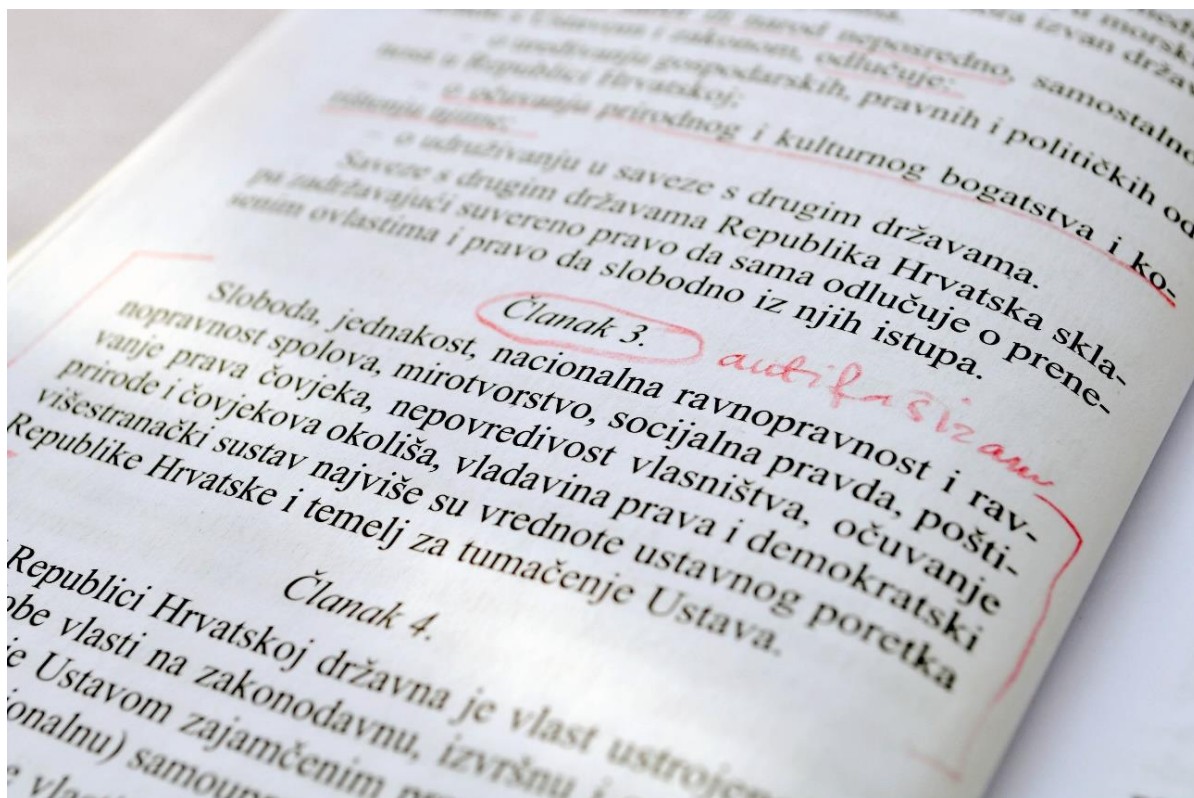 narod neposredno, samostalno
s Ustavom i zakonom, odlučuje:
– o uređivanju gospodarskih, pravnih i političkih od
nosa u Republici Hrvatskoj;
– o očuvanju prirodnog i kulturnog bogatstva i ko-
rištenju njime;
– o udruživanju u saveze s drugim državama.
Saveze s drugim državama Republika Hrvatska skla-
pa zadržavajući suvereno pravo da sama odlučuje o prene-
senim ovlastima i pravo da slobodno iz njih istupa.
Članak 3. antifašizam
Sloboda, jednakost, nacionalna ravnopravnost i rav-
nopravnost spolova, mirotvorstvo, socijalna pravda, pošti-
vanje prava čovjeka, nepovredivost vlasništva, očuvanje
prirode i čovjekova okoliša, vladavina prava i demokratski
višestranački sustav najviše su vrednote ustavnog poretka
Republike Hrvatske i temelj za tumačenje Ustava.
Članak 4.
Republici Hrvatskoj državna je vlast ustrojen
obe vlasti na zakonodavnu, izvršnu i
e Ustavom zajamčenim pr
onalnu) samoup
vlas